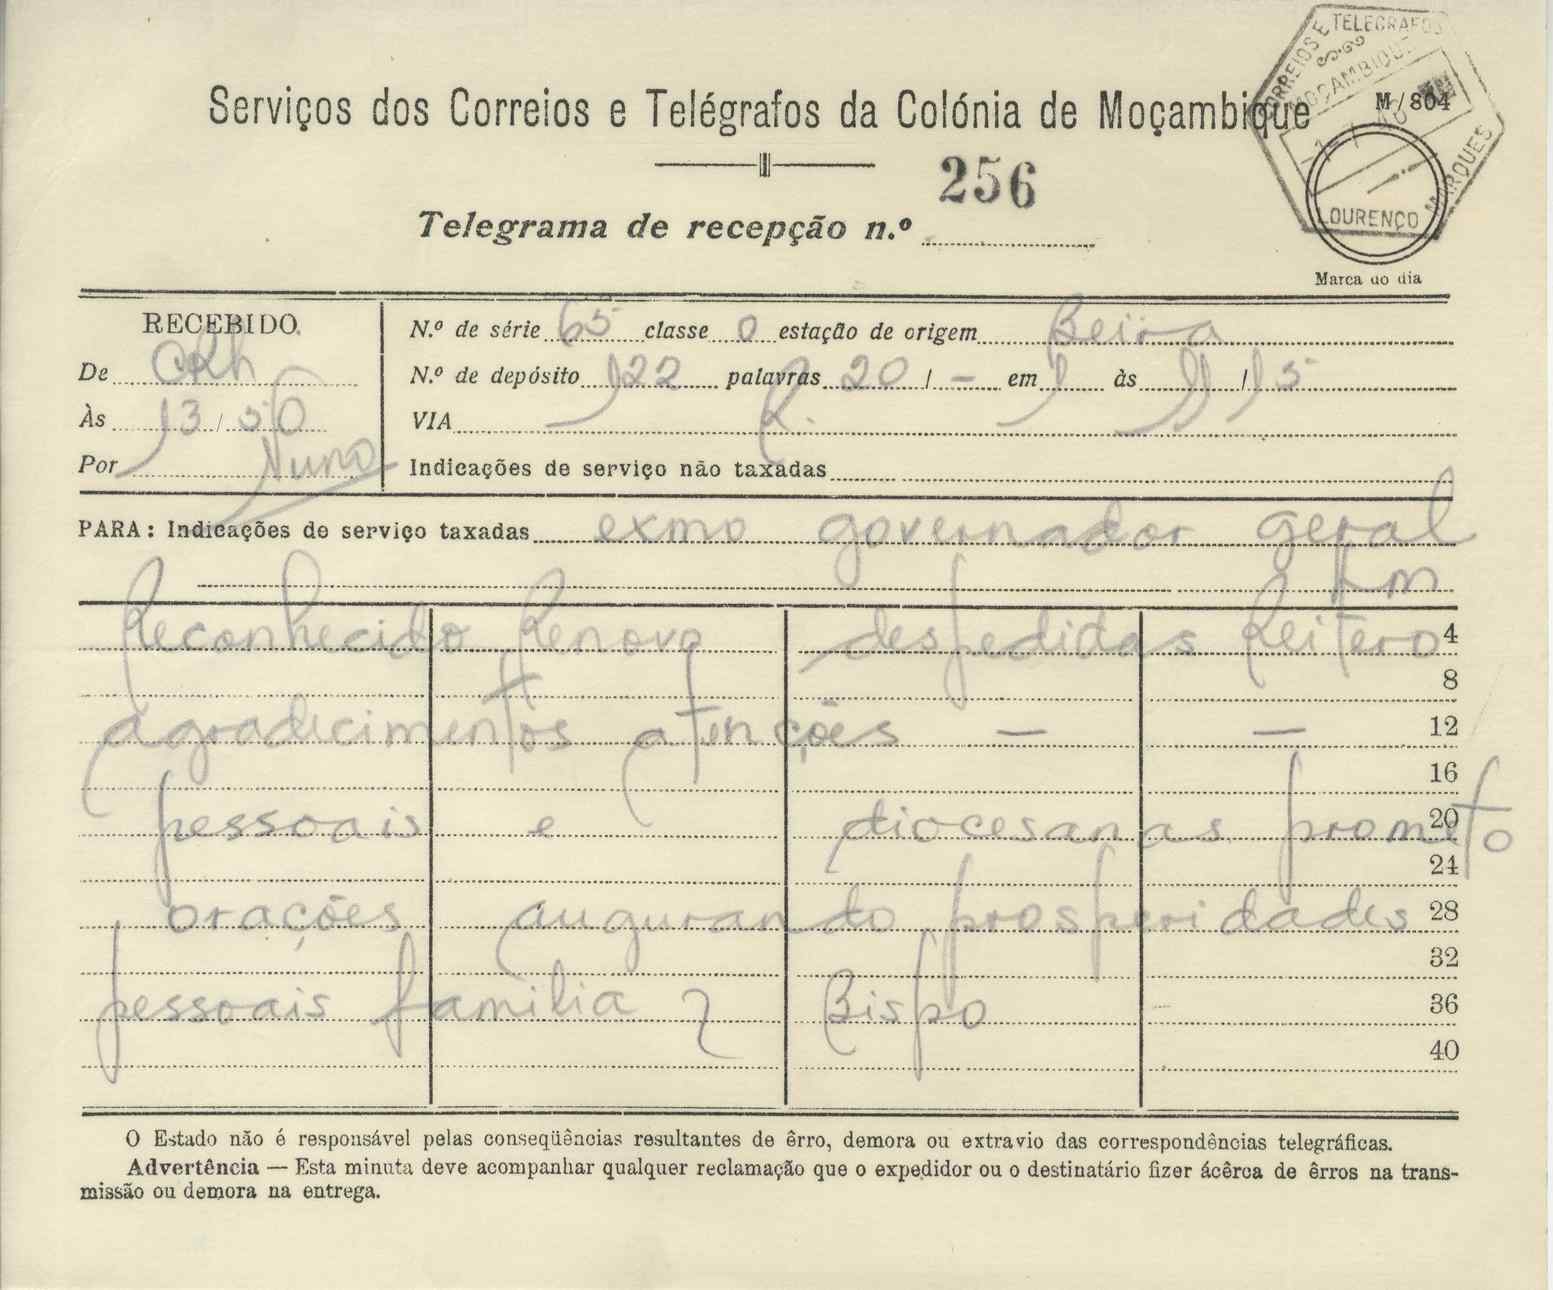 CORREIOS E TELEGRAFOS
MOÇAMBIQUE
LOURENÇO MARQUES
M/804
Serviços dos Correios e Telégrafos da Colónia de Moçambique
256
Telegrama de recepção n.º
Marca do dia
RECEBIDO
De
Às 13/50
Por Nuno
N.º de série 65 classe 0 estação de origem Beira
N.º de depósito 122 palavras 20 / - em 1 às 11 / 15
VIA R.
Indicações de serviço não taxadas
PARA: Indicações de serviço taxadas exmo governador geral
Lm
Reconhecido Renovo despedidas Reitero 4
8
agradecimentos atenções — — 12
16
pessoais e diocesanas prometo 20
24
orações augurando prosperidades 28
32
pessoais familia Bispo 36
40
O Estado não é responsável pelas conseqüências resultantes de êrro, demora ou extravio das correspondências telegráficas.
Advertência — Esta minuta deve acompanhar qualquer reclamação que o expedidor ou o destinatário fizer ácêrca de êrros na trans-
missão ou demora na entrega.